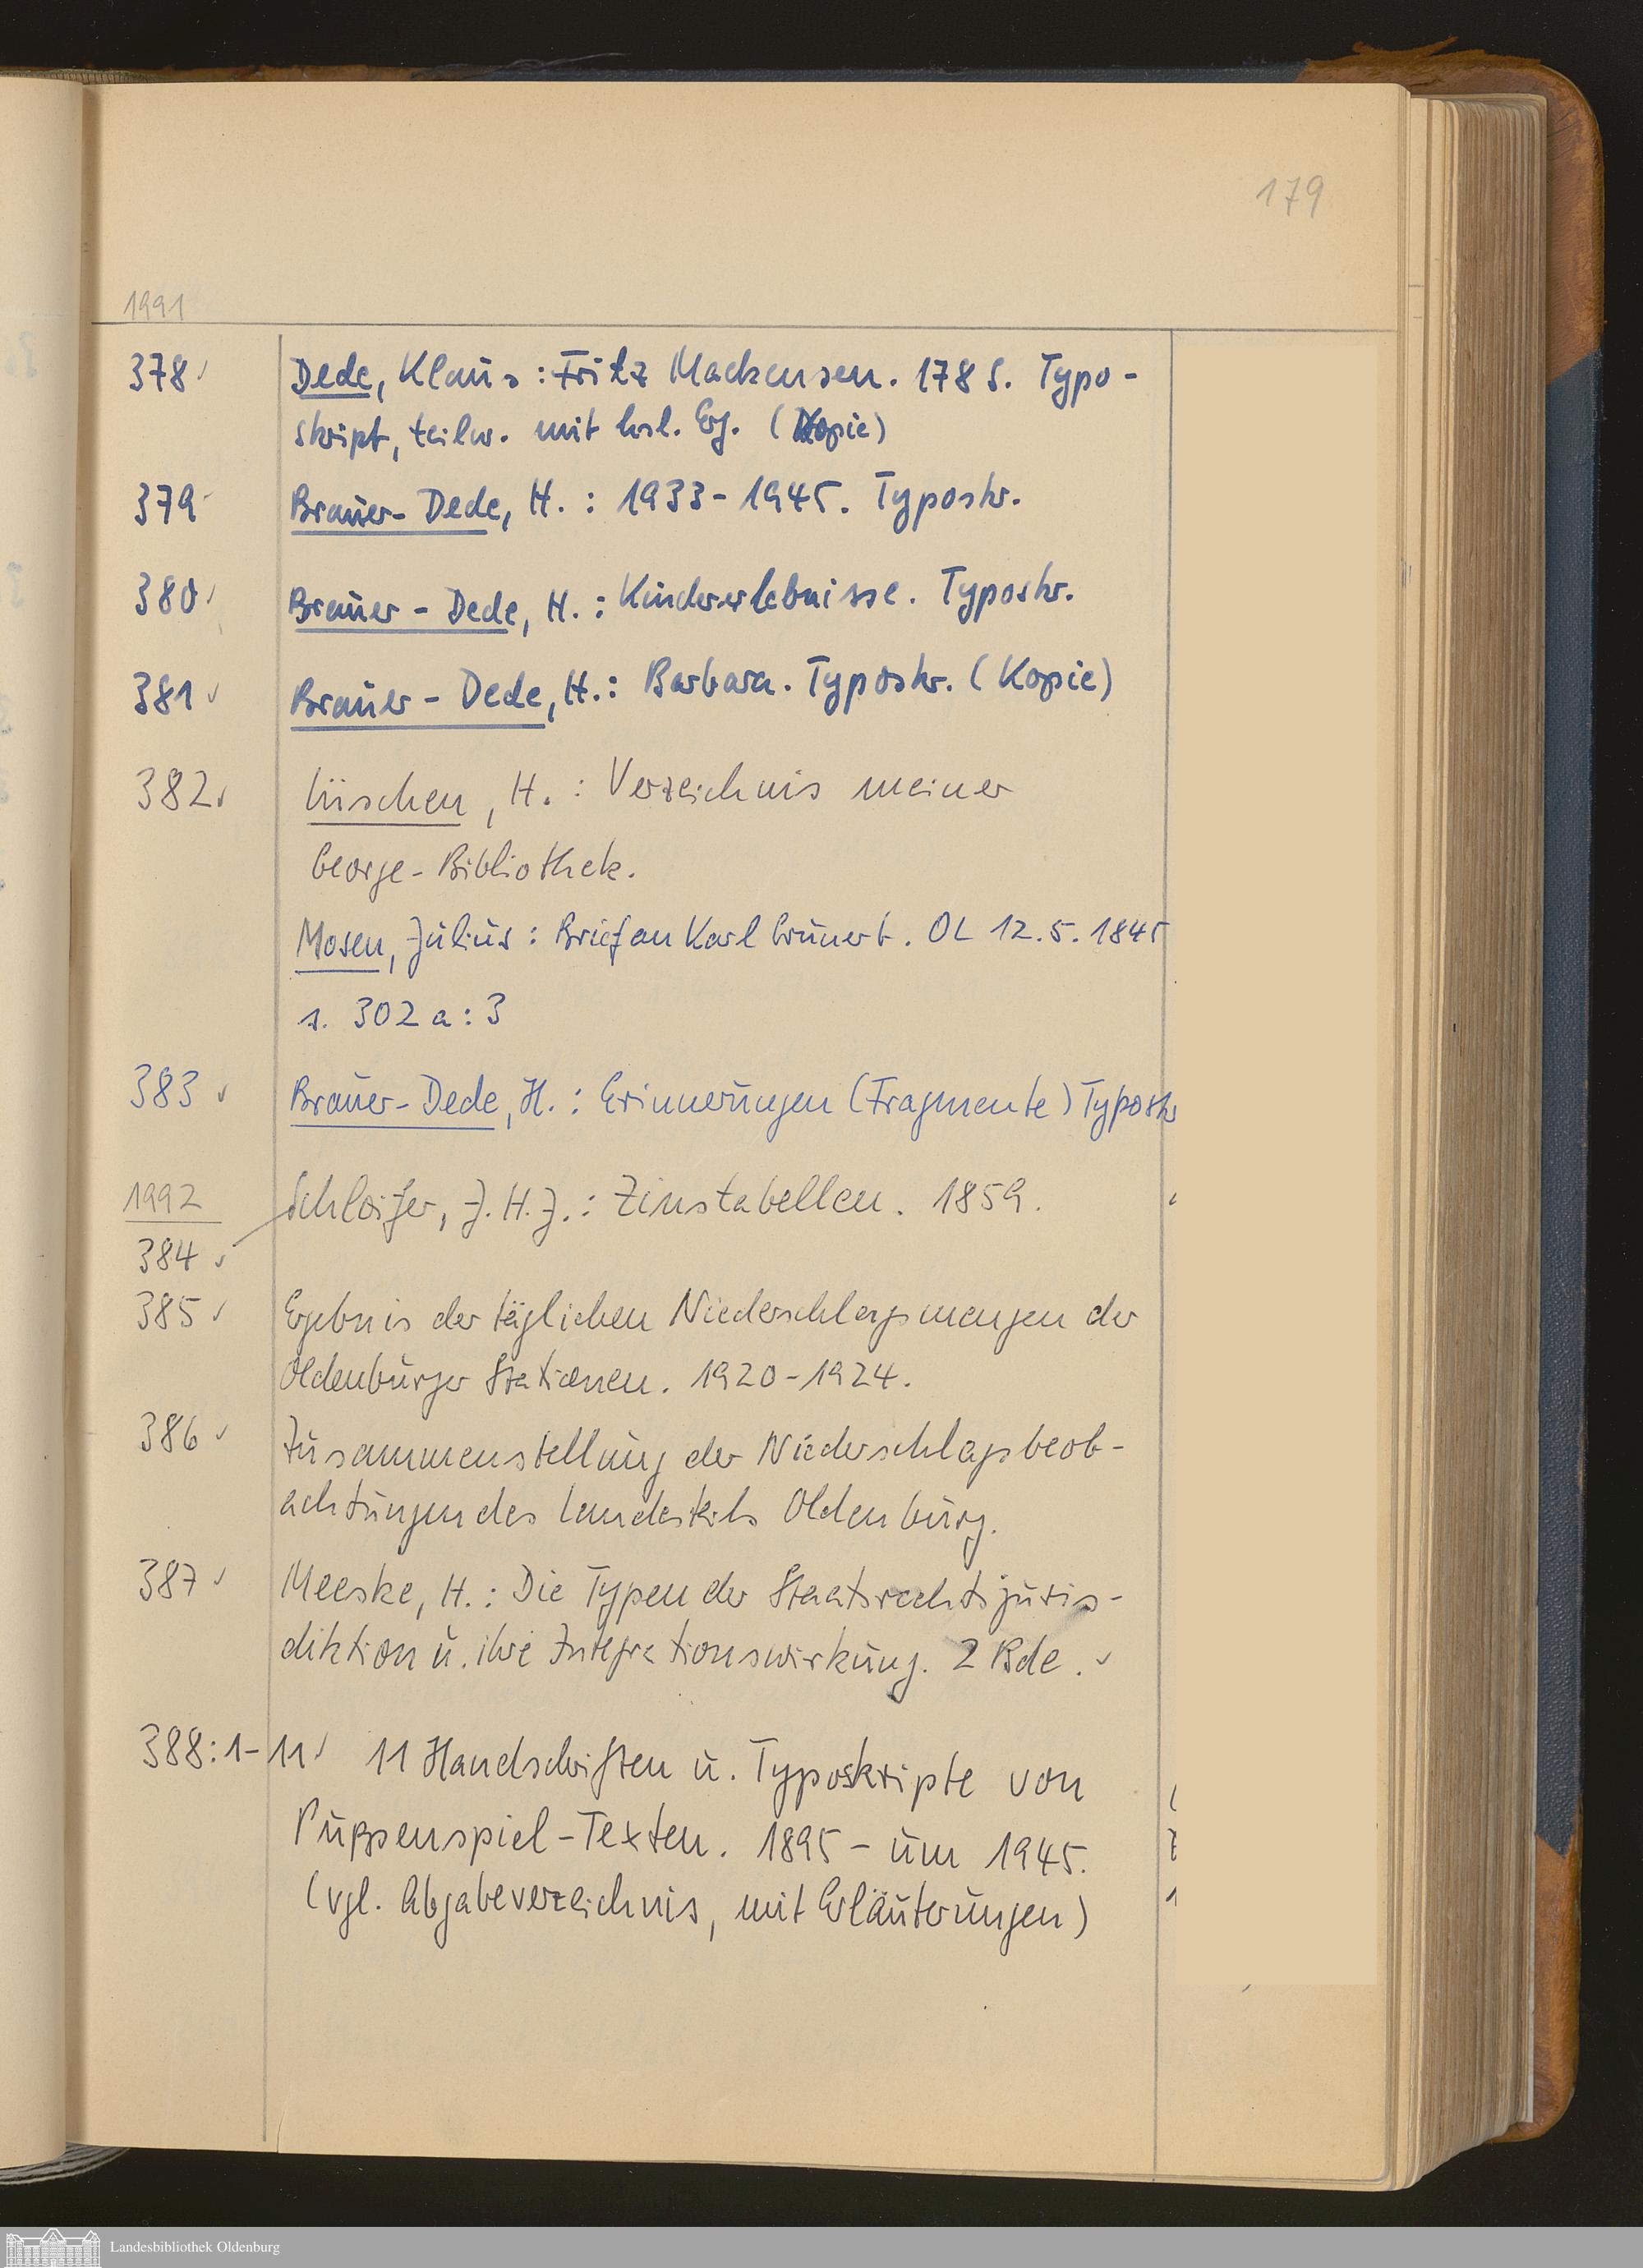 179
1991
378 ✓ Dede, Klaus: Fritz Mackensen. 178 S. Typo-
skript, teilw. mit hsl. Erg. (Kopie)
379 Brauer-Dede, H.: 1933-1945. Typoskr.
380 ✓ Brauer-Dede, H.: Kindererlebnisse. Typoskr.
381 ✓ Brauer-Dede, H.: Barbara. Typoskr. (Kopie)
382 ✓ Lüschen, H.: Verzeichnis meiner
George-Bibliothek.
Mosen, Julius: Brief an Karl Grunert. OL 12.5.1845
s. 302 a:3
383 ✓ Brauer-Dede, H.: Erinnerungen (Fragmente) Typoskr
1992 Schloifer, J.H.J.: Zinstabellen. 1859.
384 ✓
385 ✓ Ergebnis der täglichen Niederschlagsmengen der
Oldenburger Stationen. 1920-1924.
386 ✓ Zusammenstellung der Niederschlagsbeob-
achtungen des Landesteils Oldenburg.
387 ✓ Meeske, H.: Die Typen der Staatsrechtsjuris-
diktion u. ihre Integrationswirkung. 2 Bde. ✓
388:1-11 ✓ 11 Handschriften u. Typoskripte von
Puppenspiel-Texten. 1895 - um 1945.
(vgl. Abgabeverzeichnis, mit Erläuterungen)
Landesbibliothek Oldenburg